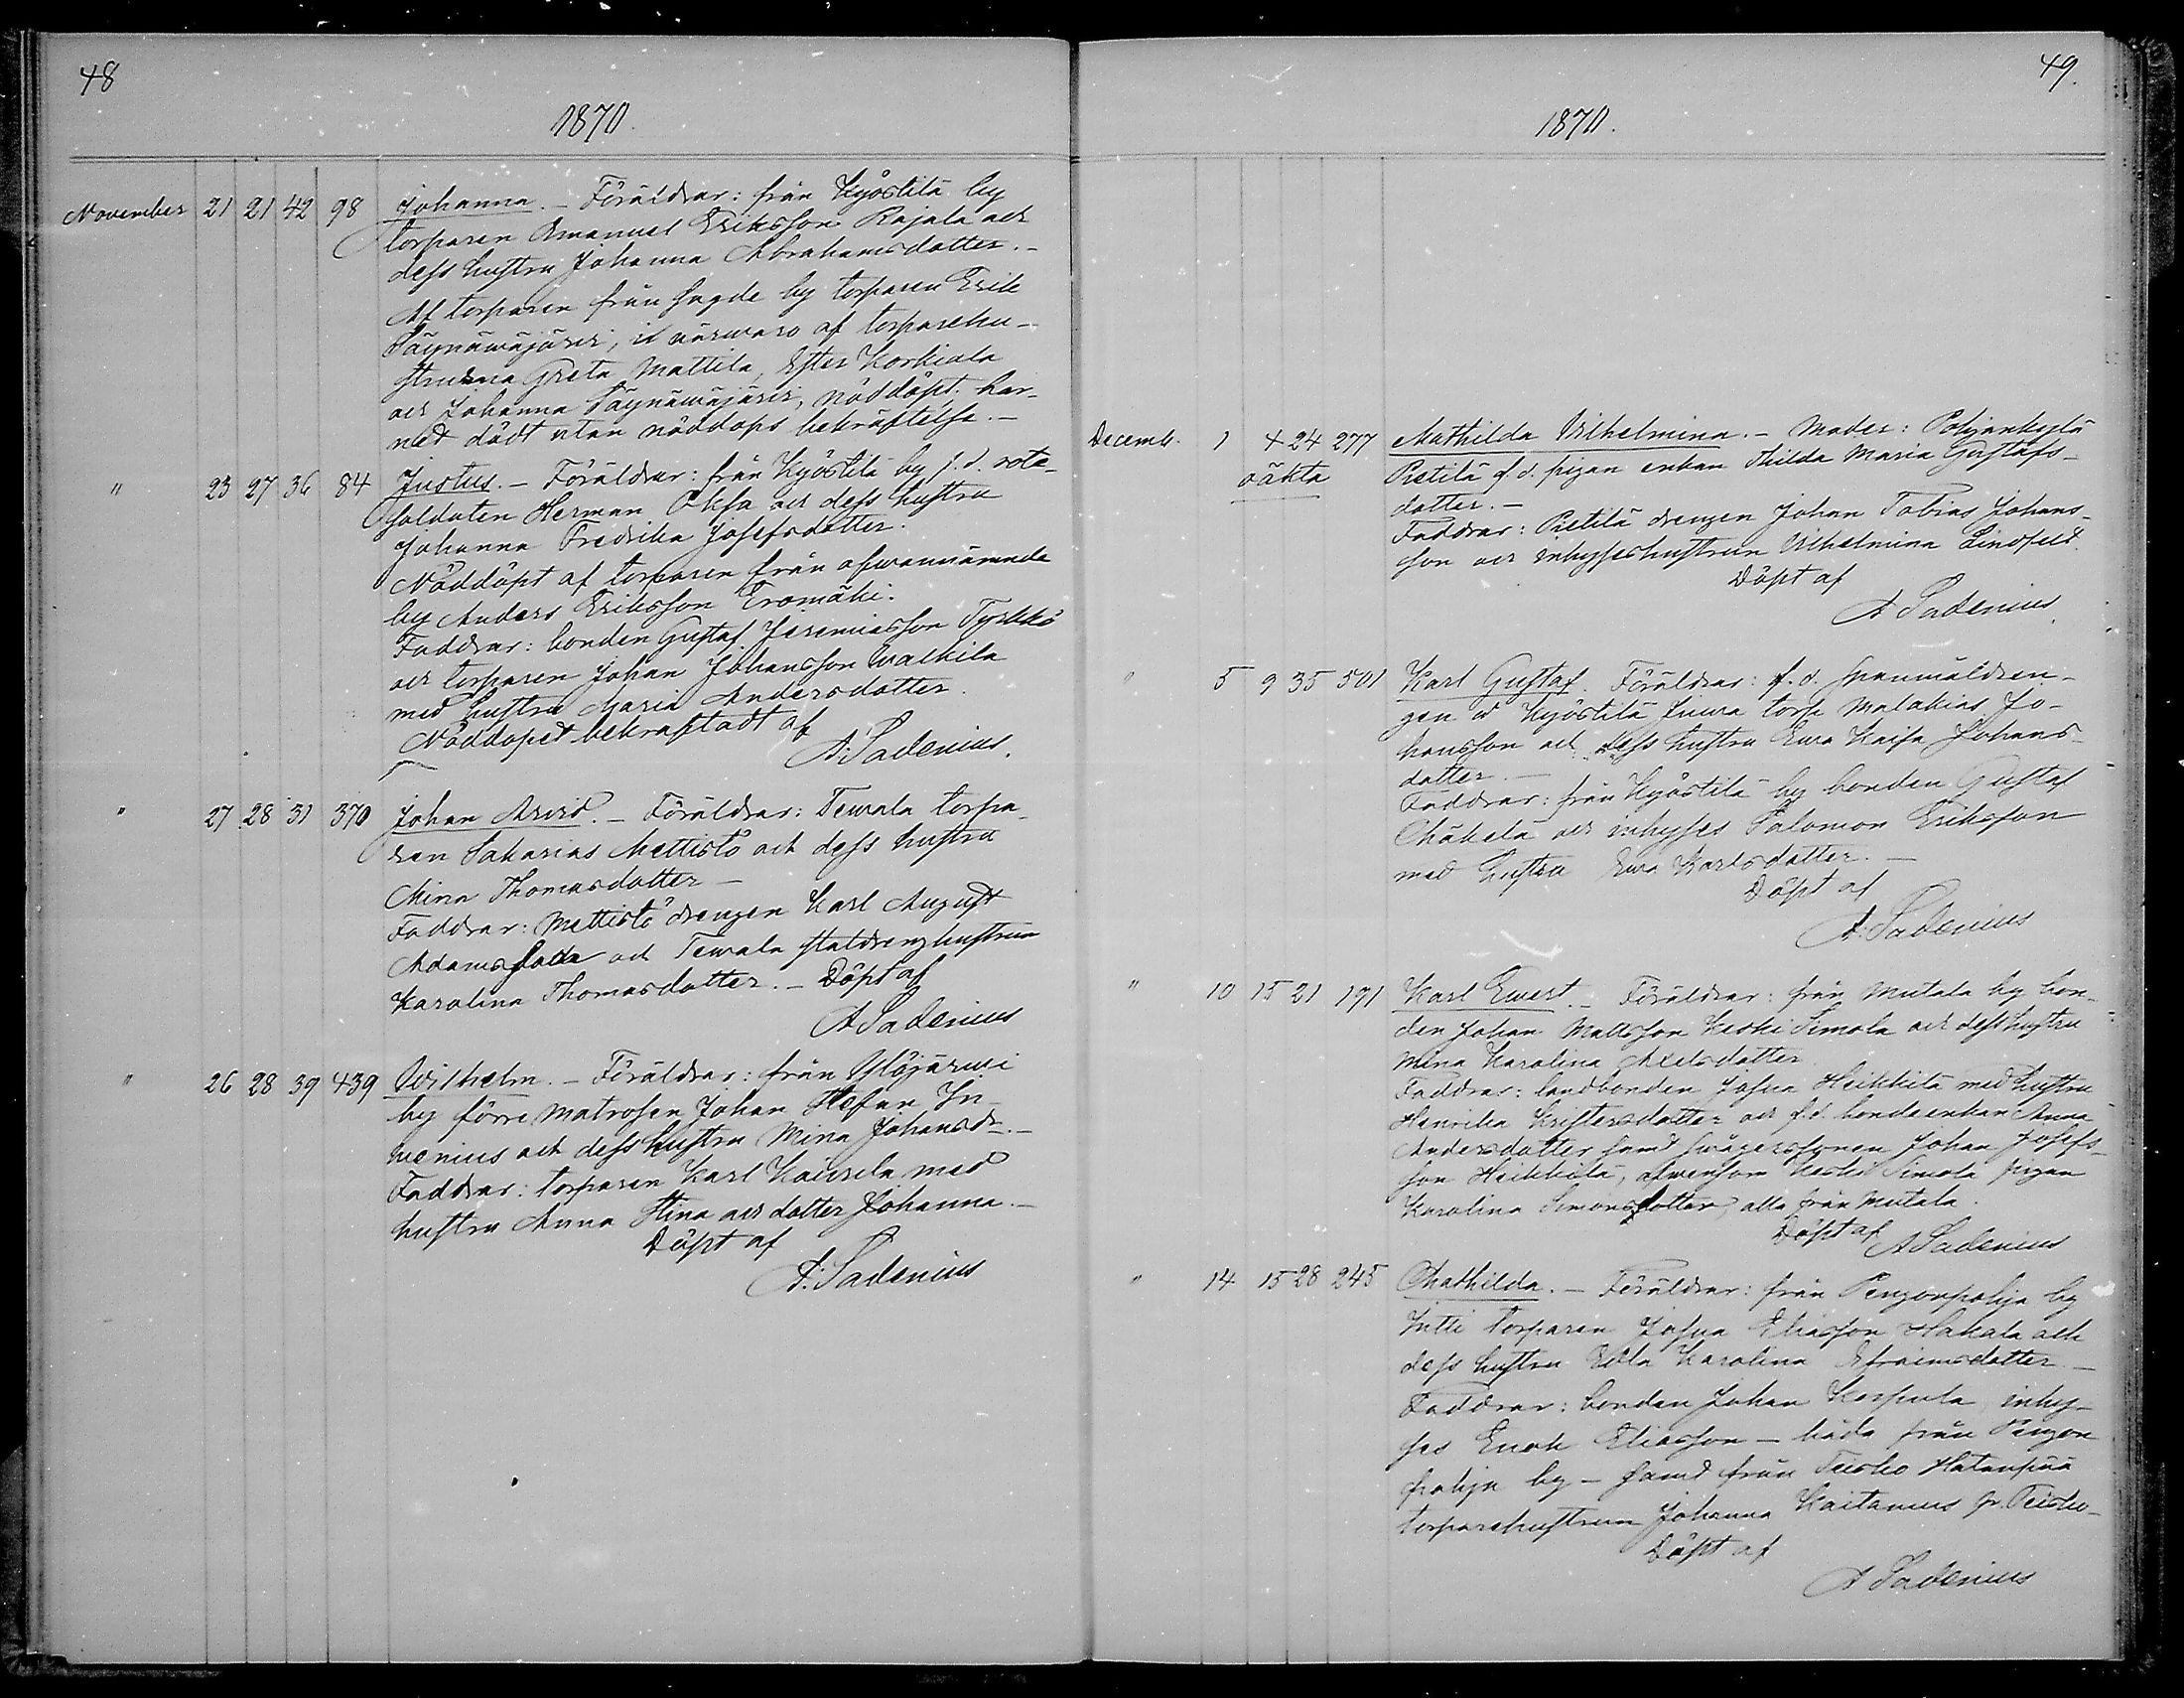 48
1870.
November 21 21 42 98 Johanna. – Föräldrar: från Kyöstilä by
torparen Emanuel Eriksson Rajala och
dess hustru Johanna Abrahamsdotter. –
Af torparen från sagde by torparen Erik
Säynäwäjärvi, i närwaro af torparehu-
struarna Greta Mattila, Ester Korkiala
och Johanna Säynäwäjärvi, nöddöpt. bar-
net dödt utan nöddops bekräftelse. –
" 23 27 36 84 Justus. – Föräldrar: från Kyöstilä by f.d. rote-
soldaten Herman Oksa och dess hustru
Johanna Fredrika Josefsdotter.
Nöddöpt af torparen från ofwannämnde
by Anders Eriksson Eromäki.
Faddrar: bonden Gustaf Jeremiasson Tyrkkö
och torparen Johan Johansson Walkila
med hustru Maria Andersdotter.
Nöddopet bekräftadt af
A: Sadenius.
" 27 28 31 370 Johan Arvid. – Föräldrar: Tewala torpa-
ren Sakarias Mettistö och dess hustru
Mina Thomasdotter –
Faddrar: Mettistö drengen Karl August
Adamsson och Tewala staldrenghustrun
Karolina Thomasdotter. – Döpt af
A Sadenius
" 26 28 39 439 Wilhelm. – Föräldrar: från Ylöjärwi
by förre matrosen Johan Stefan In-
wenius och dess hustru Mina Johansdr. –
Faddrar: torparen Karl Kaisela med
hustru Anna Stina och dotter Johanna. –
Döpt af
A: Sadenius
49.
1870.
Decemb. 1 4 24 277 Mathilda Wilhelmina. – Moder: Pohjankylä
oäkta Pietilä f.d. pigan enkan Thilda Maria Gustafs-
dotter. –
Faddrar: Pietilä drengen Johan Tobias Johans-
son och inhyseshustrun Wilhelmina Lindfeld.
Döpt af
A Sadenius.
" 5 9 35 501 Karl Gustaf. Föräldrar: f.d. spanmåldren-
gen å Kyöstilä Juwa torp Malakias Jo-
hansson och dess hustru Ewa Kaisa Johans-
dotter. –
Faddrar: från Kyöstilä by bonden Gustaf
Mäkelä och inhyses Salomon Eriksson
med hustru Ewa Karlsdotter. –
Döpt af
A: Sadenius
" 10 15 21 191 Karl Ewert. – Föräldrar: från Mutala by bon-
den Johan Mattsson Keski Simola och dess hustru
Mina Karolina Axelsdotter
Faddrar: landbonden Josua Heikkilä med hustru
Henrika Kristersdotter och f.d. bondeenkan Anna
Andersdotter samt swågerssonen Johan Josefs-
son Heikkilä, äfwensom Keski Simola pigan
Karolina Simonsdotter, alla från Mutala.
Döpt af A Sadenius
" 14 15 28 245 Mathilda. – Föräldrar: från Pengonpohja by
Jutti torparen Josua Eliasson Hakala och
dess hustru Edla Karolina Efraimsdotter –
Faddrar: bonden Johan Korpula, inhy-
ses Enok Eliasson – båda från Pengon
pohja by – samt från Teisko Hatanpää
torparehustrun Johanna Kaitamus fr. Teisko –
Döpt af
A Sadenius